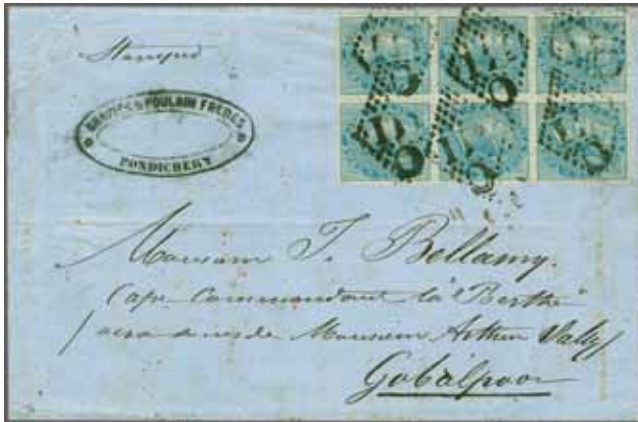 Stamped
POULAIN FRERES
PONDICHERY
Monsieur J. Bellamy.
Cape Commandant la "Berthe"
aux de Monsieur Arthur Vally
Gobalpoor